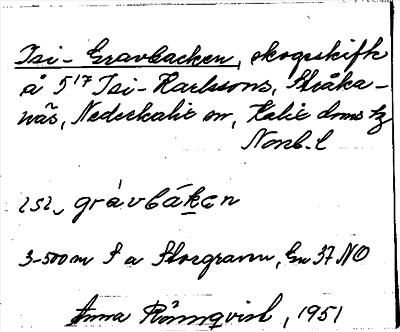 Isi-Gravbacken, skogsskifte
å 5¹⁷ Isi-Karlssons, Stråka-
näs, Nederkalix sn, Kalix doms tg
Norrb. l
ɩsɩ, grávbáken
3-500 m S a Storgravan, Gn 37 NO
Anna Rönnqvist, 1951